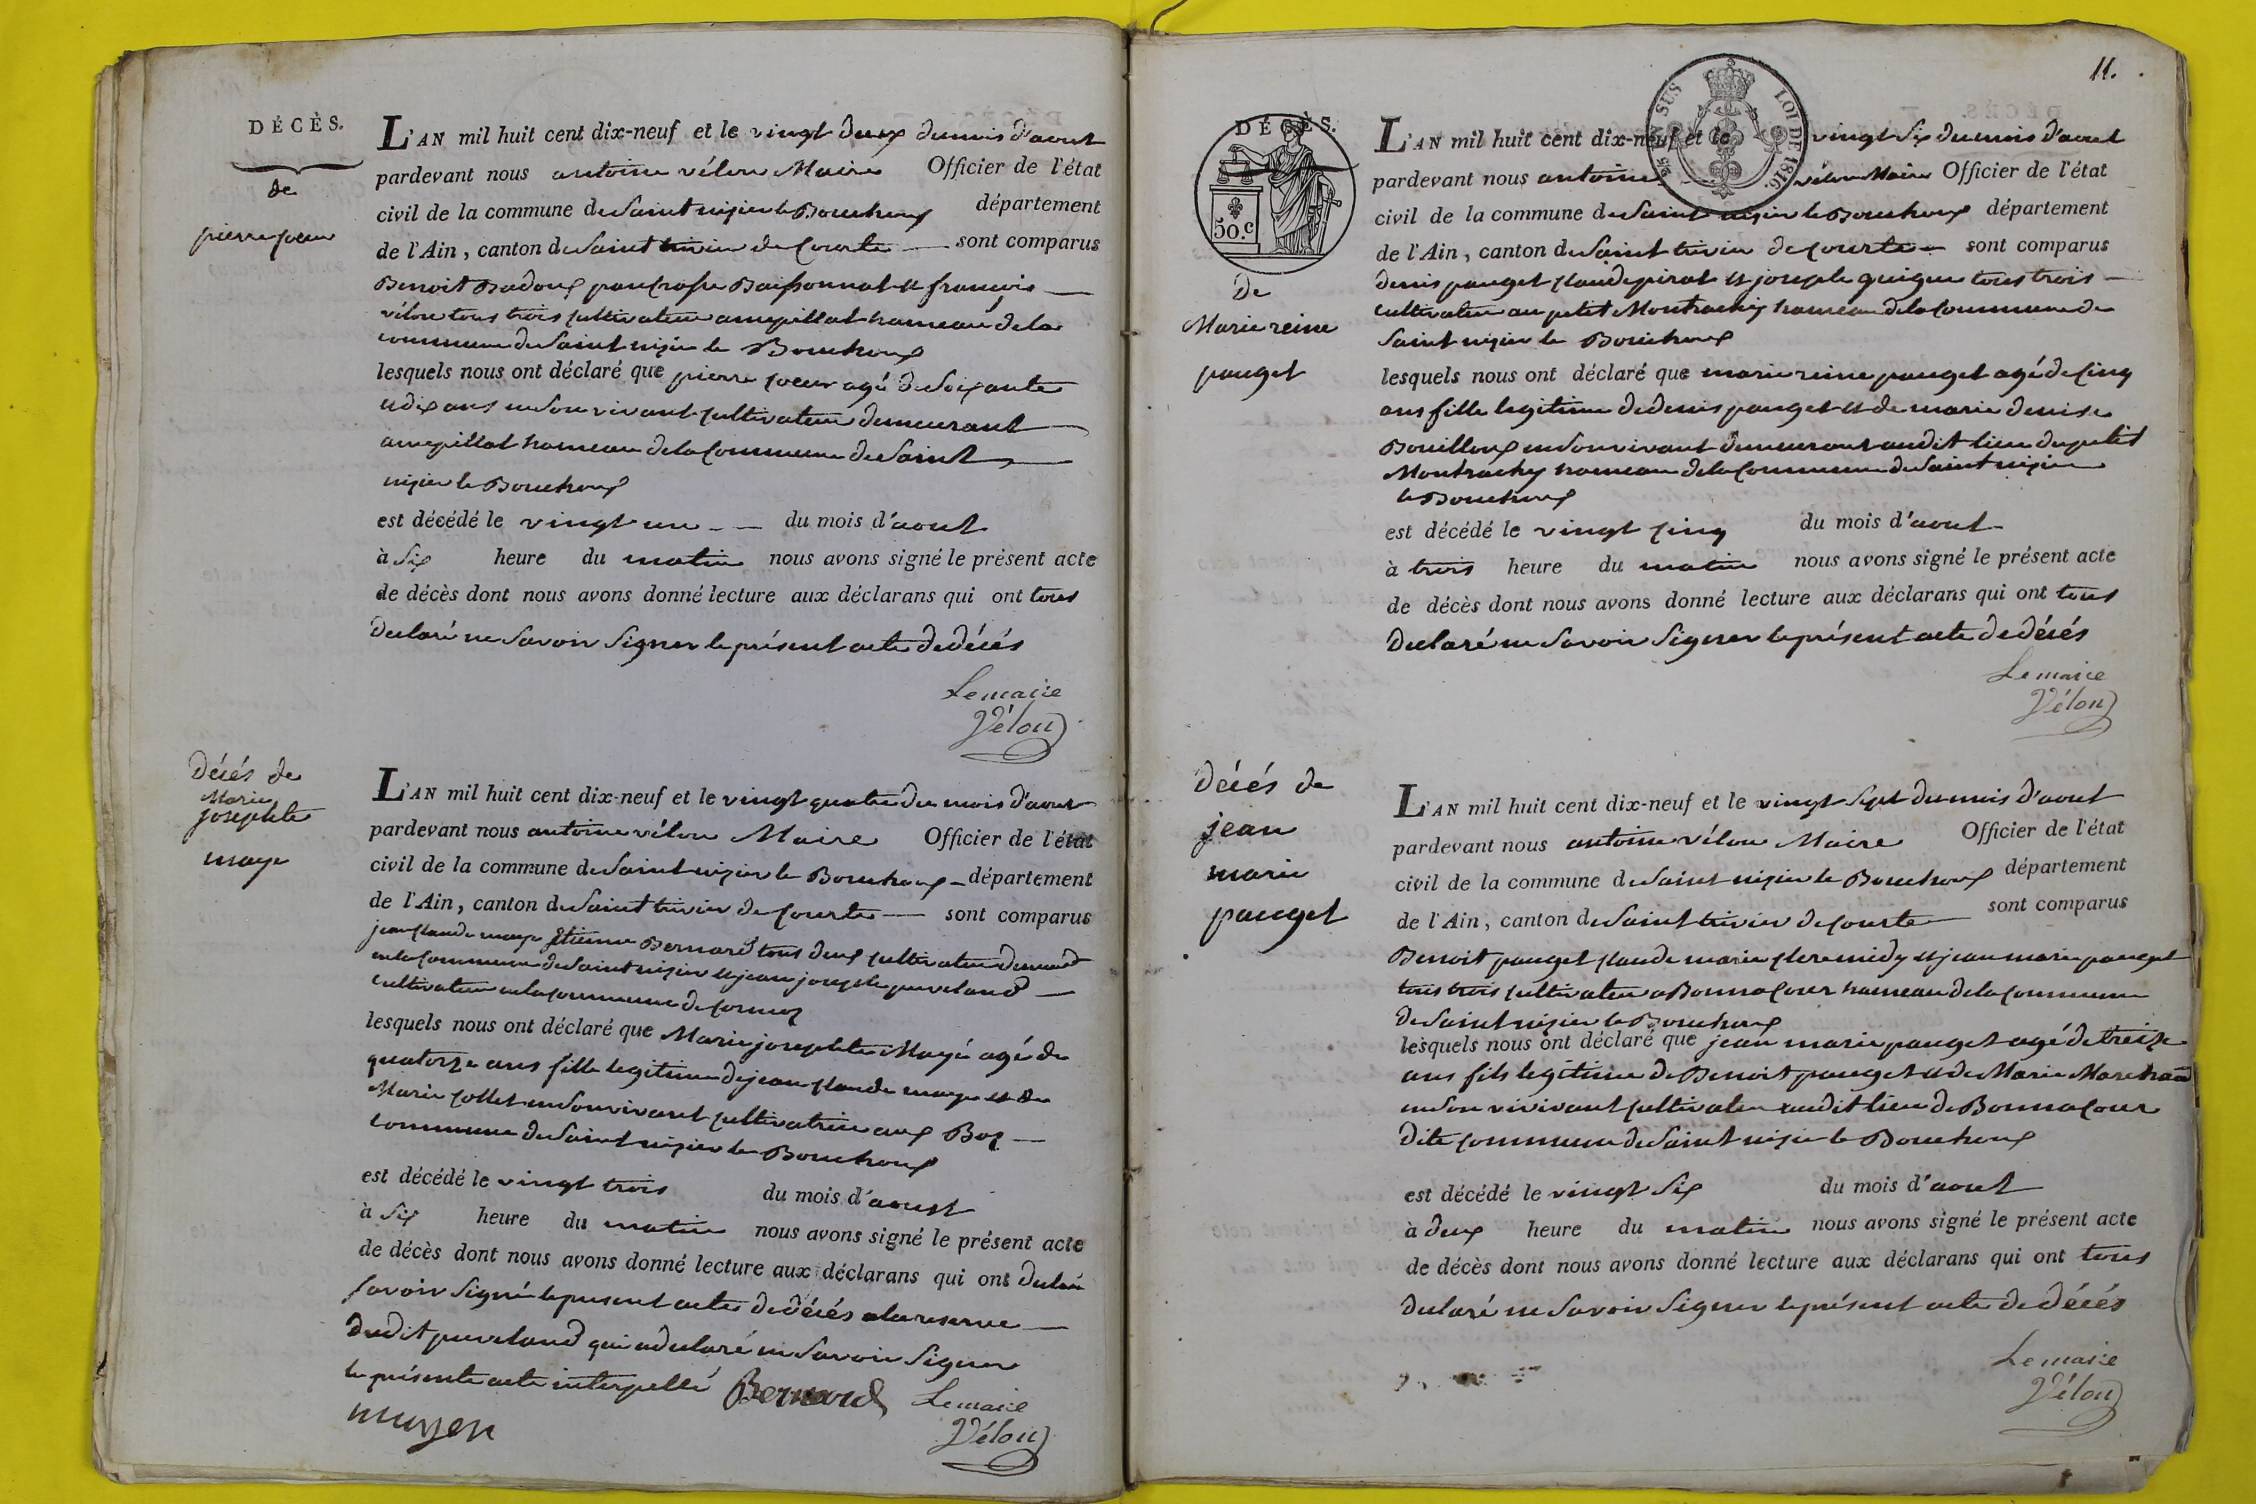 DÉCÈS.
de
pierre joeur
L'AN mil huit cent dix-neuf et le vingt deux du mois d'aout
pardevant nous antoine vélon Maire Officier de l'état
civil de la commune de Saint nizier le Bouchoux département
de l'Ain, canton de Saint trivier de Courte sont comparus
Benoit Badoux pancrasse Baissonnat et françois
vélon tous trois cultivateur a hameau de la
commune de Saint nizier le Bouchoux
lesquels nous ont déclaré que pierre agé de Soixante
et dix ans en Son vivant cultivateur demeurant
a hameau de la Commune de Saint
nizier le Bouchoux
est décédé le vingt un du mois d'aout
à Six heure du matin nous avons signé le présent acte
de décès dont nous avons donné lecture aux déclarans qui ont tous
declaré ne Savoir Signer le présent acte de décés
Le maire
Vélon
Décés de
Marie
josephte
maye
L'AN mil huit cent dix-neuf et le vingt quatre du mois d'aout
pardevant nous antoine vélon Maire Officier de l'état
civil de la commune de Saint nizier le Bouchoux département
de l'Ain, canton de Saint trivier de Courte sont comparus
jean claude maye Etienne Bernard tous deux cultivateur demeurt
en la Commune de Saint nizier et jean joseph
cultivateur en la Commune de Cormoz
lesquels nous ont déclaré que Marie josephte Mayé agé de
quatorze ans fille legitime de jean claude maye et de
Marie collet en Son vivant cultivatrice aux Boz
commune de Saint nizier le Bouchoux
est décédé le vingt trois du mois d'aoust
à Six heure du matin nous avons signé le présent acte
de décès dont nous avons donné lecture aux déclarans qui ont
Savoir Signé le present acte de décés a la reserve
dudit qui a declaré ne Savoir Signer
le présente acte interpellé Bernard Le maire
muyen Vélon
11.
DÉCÈS.
50.c
EN SUS
LOI DE 1816.
de
Marie reine
pauget
L'AN mil huit cent dix-neuf et le vingt Six du mois d'aout
pardevant nous antoine vélon Maire Officier de l'état
civil de la commune de Saint nizier le Bouchoux département
de l'Ain, canton de Saint trivier de Courte sont comparus
denis pauget claude pirat et joseph guigue tous trois
cultivateur au petit Montrachy hameau de la Commune de
Saint nizier le Bouchoux
lesquels nous ont déclaré que marie reine pauget agé de Cinq
ans fille legitime de denis pauget et de marie denise
Bouilloux en Son vivant demeurant audit lieu du petit
Montrachy hameau de la Commune de Saint nizier
le Bouchoux
est décédé le vingt cinq du mois d'aout
à trois heure du matin nous avons signé le présent acte
de décès dont nous avons donné lecture aux déclarans qui ont tous
declaré ne Savoir Signer le présent acte de décés
Le maire
Vélon
Décés de
jean
marie
pauget
L'AN mil huit cent dix-neuf et le vingt Sept du mois d'aout
pardevant nous antoine vélon Maire Officier de l'état
civil de la commune de Saint nizier le Bouchoux département
de l'Ain, canton de Saint trivier de Courte sont comparus
Benoit pauget claude marie cleremidy et jean marie pauget
tous trois cultivateur a Bonnacour hameau de la Commune
de Saint nizier le Bouchoux
lesquels nous ont déclaré que jean marie pauget agé de treize
ans fils legitime de Benoit pauget et de Marie Marchand
en Son vivivant cultivateur audit lieu de Bonnacour
dite commune de Saint nizier le Bouchoux
est décédé le vingt Six du mois d'aout
à deux heure du matin nous avons signé le présent acte
de décès dont nous avons donné lecture aux déclarans qui ont tous
declaré ne Savoir Signer le présent acte de décés
Le maire
Vélon